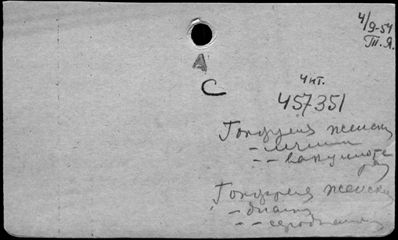 4/9-54
Т.Я.
А
С
Чит.
457351
Гонорея женск
- лечение
- - вакцинотера
Гонорея женск
- диагн
- - серодиагн